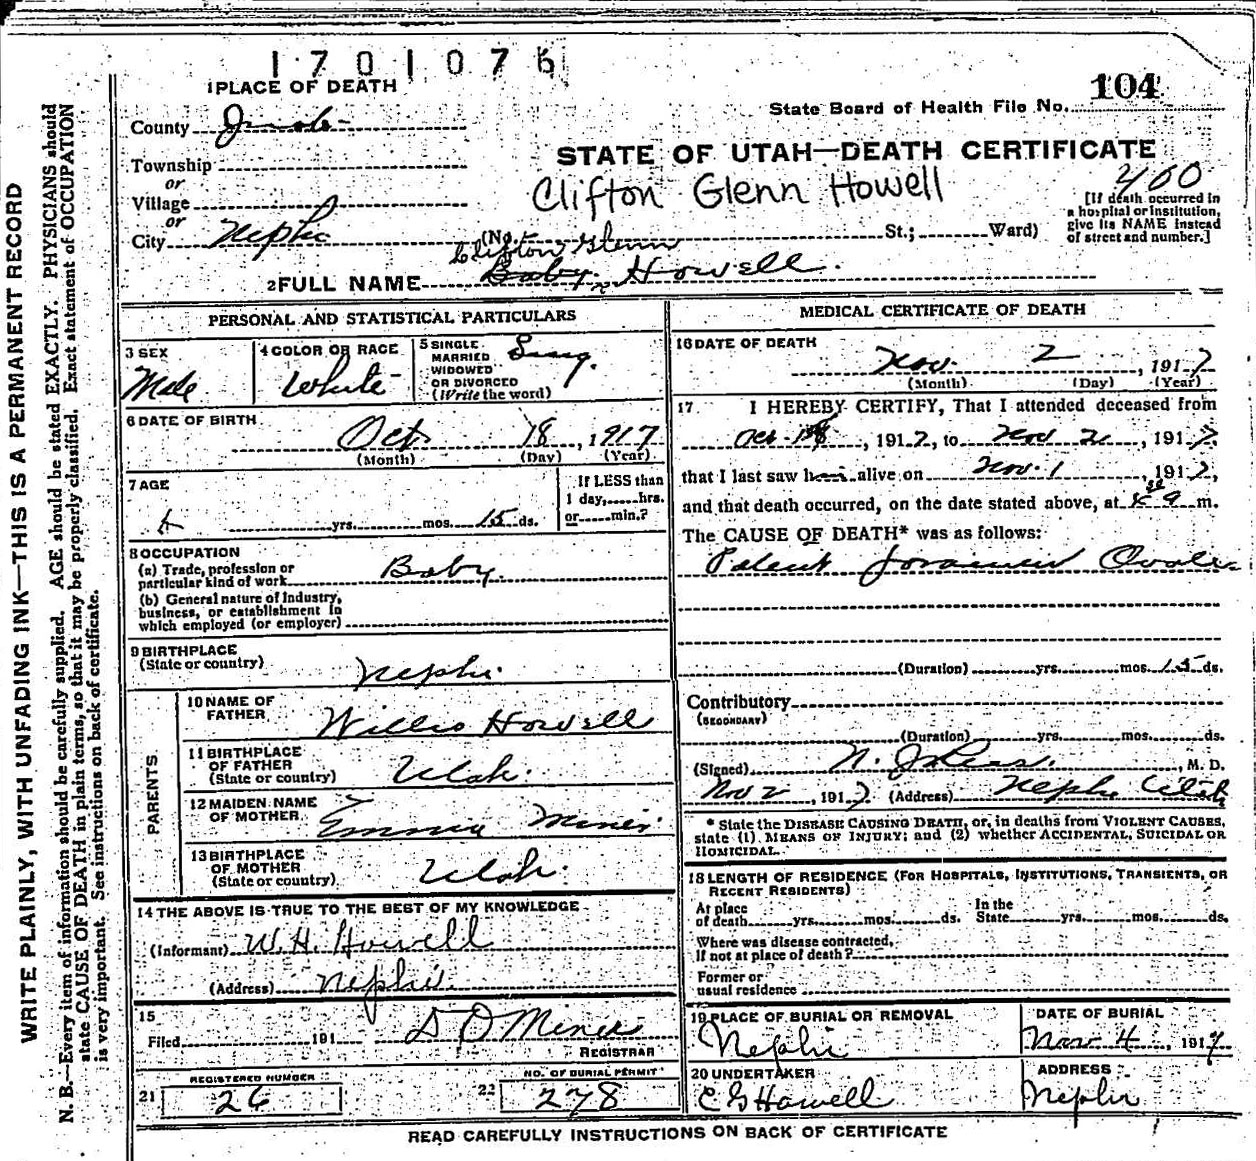 1701076
1 PLACE OF DEATH
104
State Board of Health File No.
County Juab
STATE OF UTAH—DEATH CERTIFICATE
Township
or
Clifton Glenn Howell
400
Village
or
[If death occurred in
a hospital or institution,
give its NAME instead
of street and number.]
City Nephi (No. St.; Ward)
Clifton Glenn
2 FULL NAME Baby Howell.
PERSONAL AND STATISTICAL PARTICULARS
3 SEX
Male
4 COLOR OR RACE
White
5 SINGLE
MARRIED
WIDOWED
OR DIVORCED
(Write the word)
Sing.
6 DATE OF BIRTH
Oct. 18, 1917
(Month) (Day) (Year)
7 AGE
yrs. mos. 15 ds.
If LESS than
1 day, hrs.
or min.?
8 OCCUPATION
(a) Trade, profession or
particular kind of work Baby.
(b) General nature of Industry,
business, or establishment in
which employed (or employer)
9 BIRTHPLACE
(State or country) Nephi
PARENTS
10 NAME OF
FATHER Willis Howell
11 BIRTHPLACE
OF FATHER
(State or country) Utah.
12 MAIDEN NAME
OF MOTHER Emma Miner
13 BIRTHPLACE
OF MOTHER
(State or country) Utah.
14 THE ABOVE IS TRUE TO THE BEST OF MY KNOWLEDGE
(Informant) W. H. Howell
(Address) Nephi.
15
Filed 191 D O Miner
REGISTRAR
REGISTERED NUMBER
21 26
NO. OF BURIAL PERMIT
22 278
MEDICAL CERTIFICATE OF DEATH
16 DATE OF DEATH
Nov. 2, 1917
(Month) (Day) (Year)
17 I HEREBY CERTIFY, That I attended deceased from
Oct. 18, 1917, to Nov 2, 1917
that I last saw him alive on Nov. 1, 1917,
and that death occurred, on the date stated above, at m.
The CAUSE OF DEATH* was as follows:
Patent Foramen Ovale
(Duration) yrs. mos. 15 ds.
Contributory
(SECONDARY)
(Duration) yrs. mos. ds.
(Signed) , M. D.
Nov 2, 1917 (Address) Nephi Utah
* State the DISEASE CAUSING DEATH, or, in deaths from VIOLENT CAUSES,
state (1) MEANS OF INJURY; and (2) whether ACCIDENTAL, SUICIDAL OR
HOMICIDAL.
18 LENGTH OF RESIDENCE (FOR HOSPITALS, INSTITUTIONS, TRANSIENTS, OR
RECENT RESIDENTS)
At place
of death yrs. mos. ds.
In the
State yrs. mos. ds.
Where was disease contracted,
If not at place of death?
Former or
usual residence
19 PLACE OF BURIAL OR REMOVAL
Nephi
DATE OF BURIAL
Nov 4, 1917
20 UNDERTAKER
E G Howell
ADDRESS
Nephi
READ CAREFULLY INSTRUCTIONS ON BACK OF CERTIFICATE
WRITE PLAINLY, WITH UNFADING INK—THIS IS A PERMANENT RECORD
N. B.—Every item of information should be carefully supplied. AGE should be stated EXACTLY. PHYSICIANS should
state CAUSE OF DEATH in plain terms, so that it may be properly classified. Exact statement of OCCUPATION
is very important. See instructions on back of certificate.